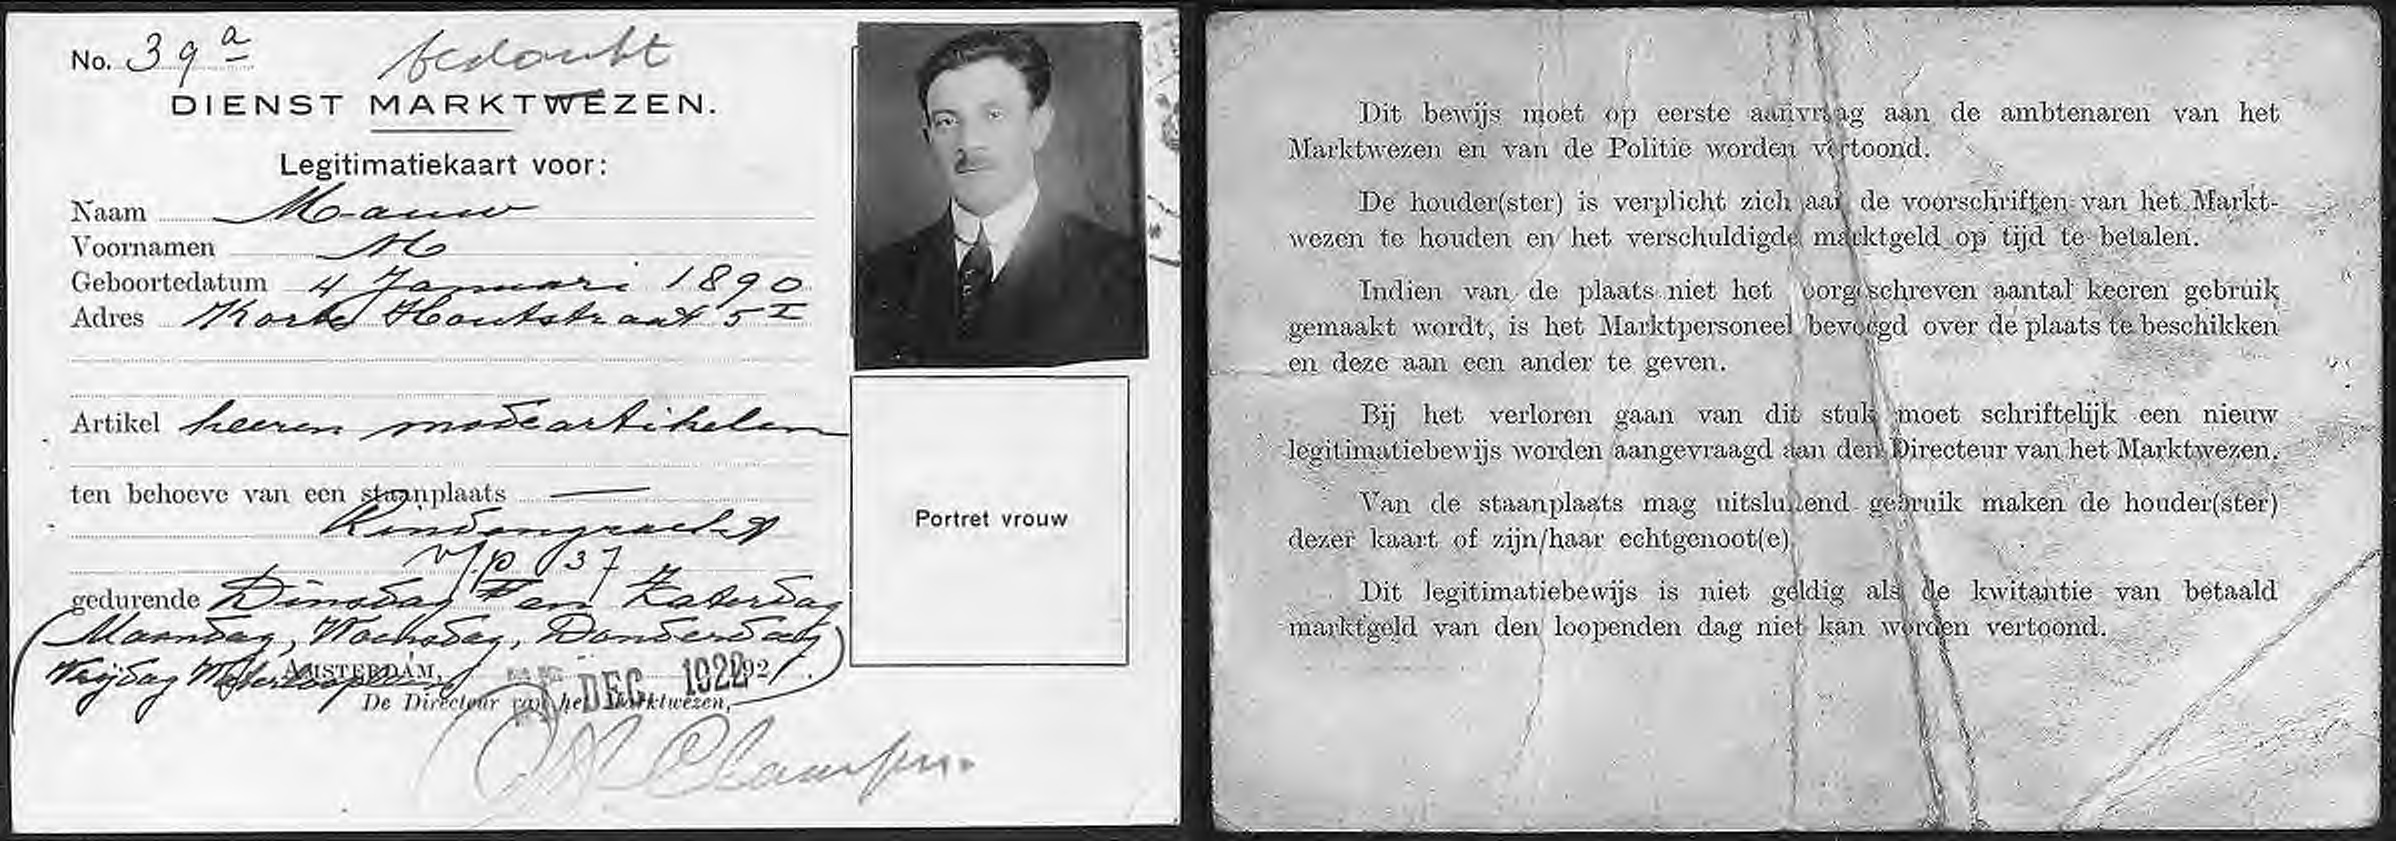 No. 39 a
bedankt
DIENST MARKTWEZEN.
Legitimatiekaart voor:
Naam Mauw
Voornamen M
Geboortedatum 4 Januari 1890
Adres Korte Houtstraat 5 I
Artikel heeren modeartikelen
ten behoeve van een staanplaats —
Lindengracht
v/p 37
gedurende Dinsdag en Zaterdag
(Maandag, Woensdag, Donderdag
Vrijdag Waterlooplein)
AMSTERDAM, DEC. 1922 192
De Directeur van het Marktwezen,
Portret vrouw
Dit bewijs moet op eerste aanvraag aan de ambtenaren van het
Marktwezen en van de Politie worden vertoond.
De houder(ster) is verplicht zich aan de voorschriften van het Markt-
wezen te houden en het verschuldigde marktgeld op tijd te betalen.
Indien van de plaats niet het voorgeschreven aantal keeren gebruik
gemaakt wordt, is het Marktpersoneel bevoegd over de plaats te beschikken
en deze aan een ander te geven.
Bij het verloren gaan van dit stuk moet schriftelijk een nieuw
legitimatiebewijs worden aangevraagd aan den Directeur van het Marktwezen.
Van de staanplaats mag uitsluitend gebruik maken de houder(ster)
dezer kaart of zijn/haar echtgenoot(e).
Dit legitimatiebewijs is niet geldig als de kwitantie van betaald
marktgeld van den loopenden dag niet kan worden vertoond.